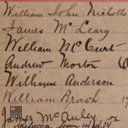 William John Nicholls
James McLeary
William McCurt
Andrew Morton
William Anderson
William Brash
James McAuley